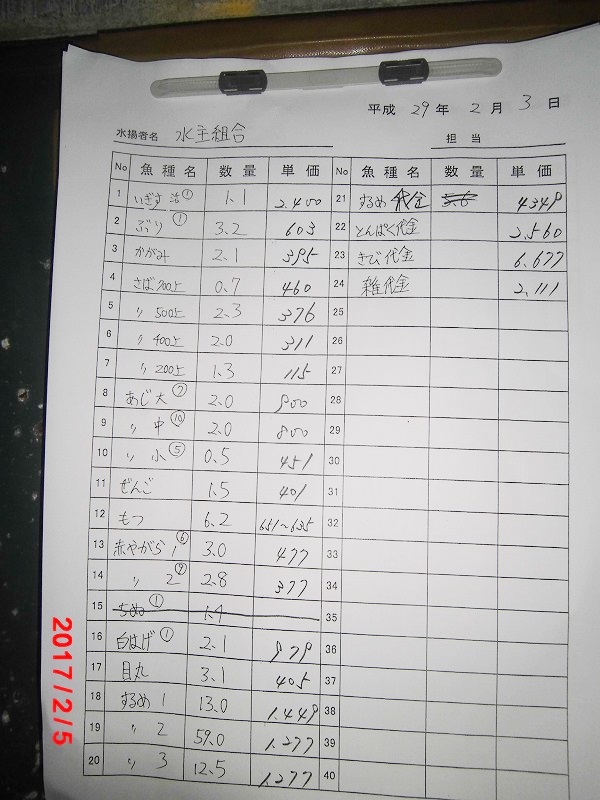 平成 29 年 2 月 3 日
水揚者名 水主組合 担当
No 魚種名 数量 単価 No 魚種名 数量 単価
1 いぎす活① 1.1 2.400 21 するめ代金 4349
2 ぶり① 3.2 603 22 とんぱく代金 2,560
3 かがみ 2.1 395 23 きび代金 6.677
4 さば700上 0.7 460 24 雑代金 2,111
5 〃 500上 2.3 376 25
6 〃 400上 2.0 311 26
7 〃 200上 1.3 115 27
8 あじ大⑦ 2.0 900 28
9 〃 中⑩ 2.0 800 29
10 〃 小⑤ 0.5 451 30
11 ぜんご 1.5 401 31
12 もつ 6.2 651〜635 32
13 赤やがら1⑥ 3.0 477 33
14 〃 2⑨ 2.8 377 34
15 ちぬ① 1.4 35
16 白はげ① 2.1 979 36
17 目丸 3.1 405 37
18 するめ1 13.0 1.449 38
19 〃 2 59.0 1.277 39
20 〃 3 12.5 1,277 40
2017/2/5